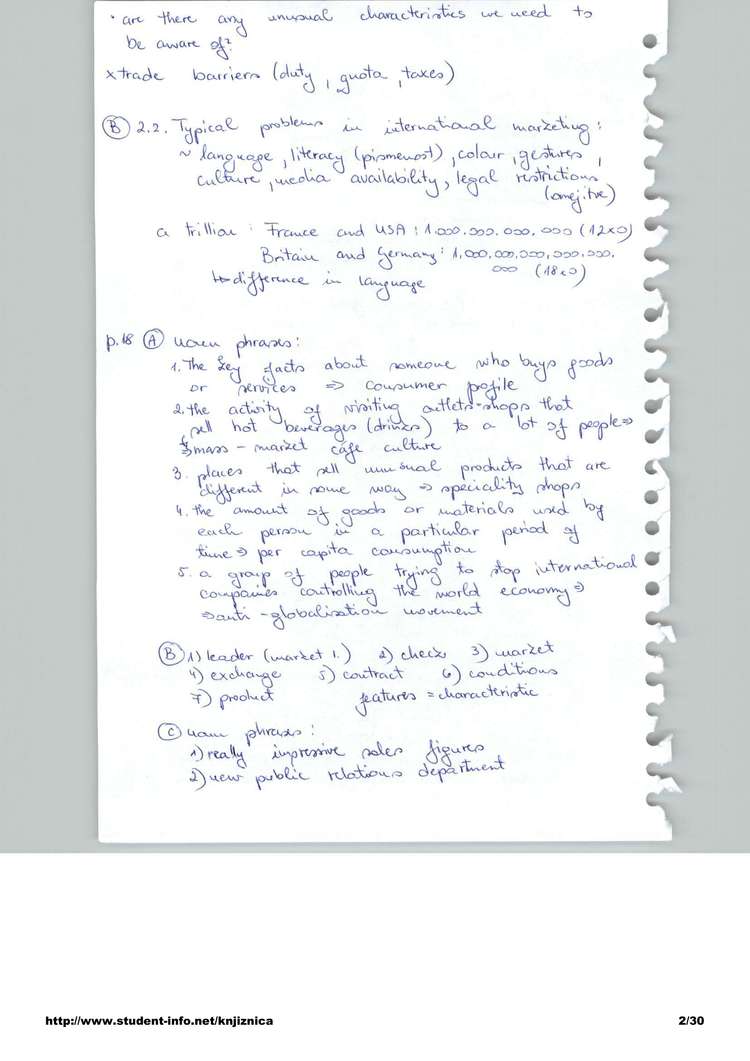 • are there any unusual characteristics we need to
be aware of?
x trade barriers (duty, quota, taxes)
(B) 2.2. Typical problems in international marketing:
~ language, literacy (pismenost), colour, gestures,
culture, media availability, legal restrictions
(omejitve)
a trillion: France and USA: 1.000.000.000.000 (12x0)
Britain and Germany: 1,000,000,000,000,000.
000 (18x0)
↳ difference in language
p.18 (A) noun phrases:
1. The key facts about someone who buys goods
or services ⇒ consumer profile
2. the activity of visiting outlets-shops that
sell hot beverages (drinks) to a lot of people⇒
mass-market cafe culture
3. places that sell unusual products that are
different in some way ⇒ speciality shops
4. the amount of goods or materials used by
each person in a particular period of
time ⇒ per capita consumption
5. a group of people trying to stop international
companies controlling the world economy ⇒
⇒ anti-globalisation movement
(B) 1) leader (market l.) 2) check 3) market
4) exchange 5) contract 6) conditions
7) product features = characteristic
(C) noun phrases:
1) really impressive sales figures
2) new public relations department
http://www.student-info.net/knjiznica 2/30